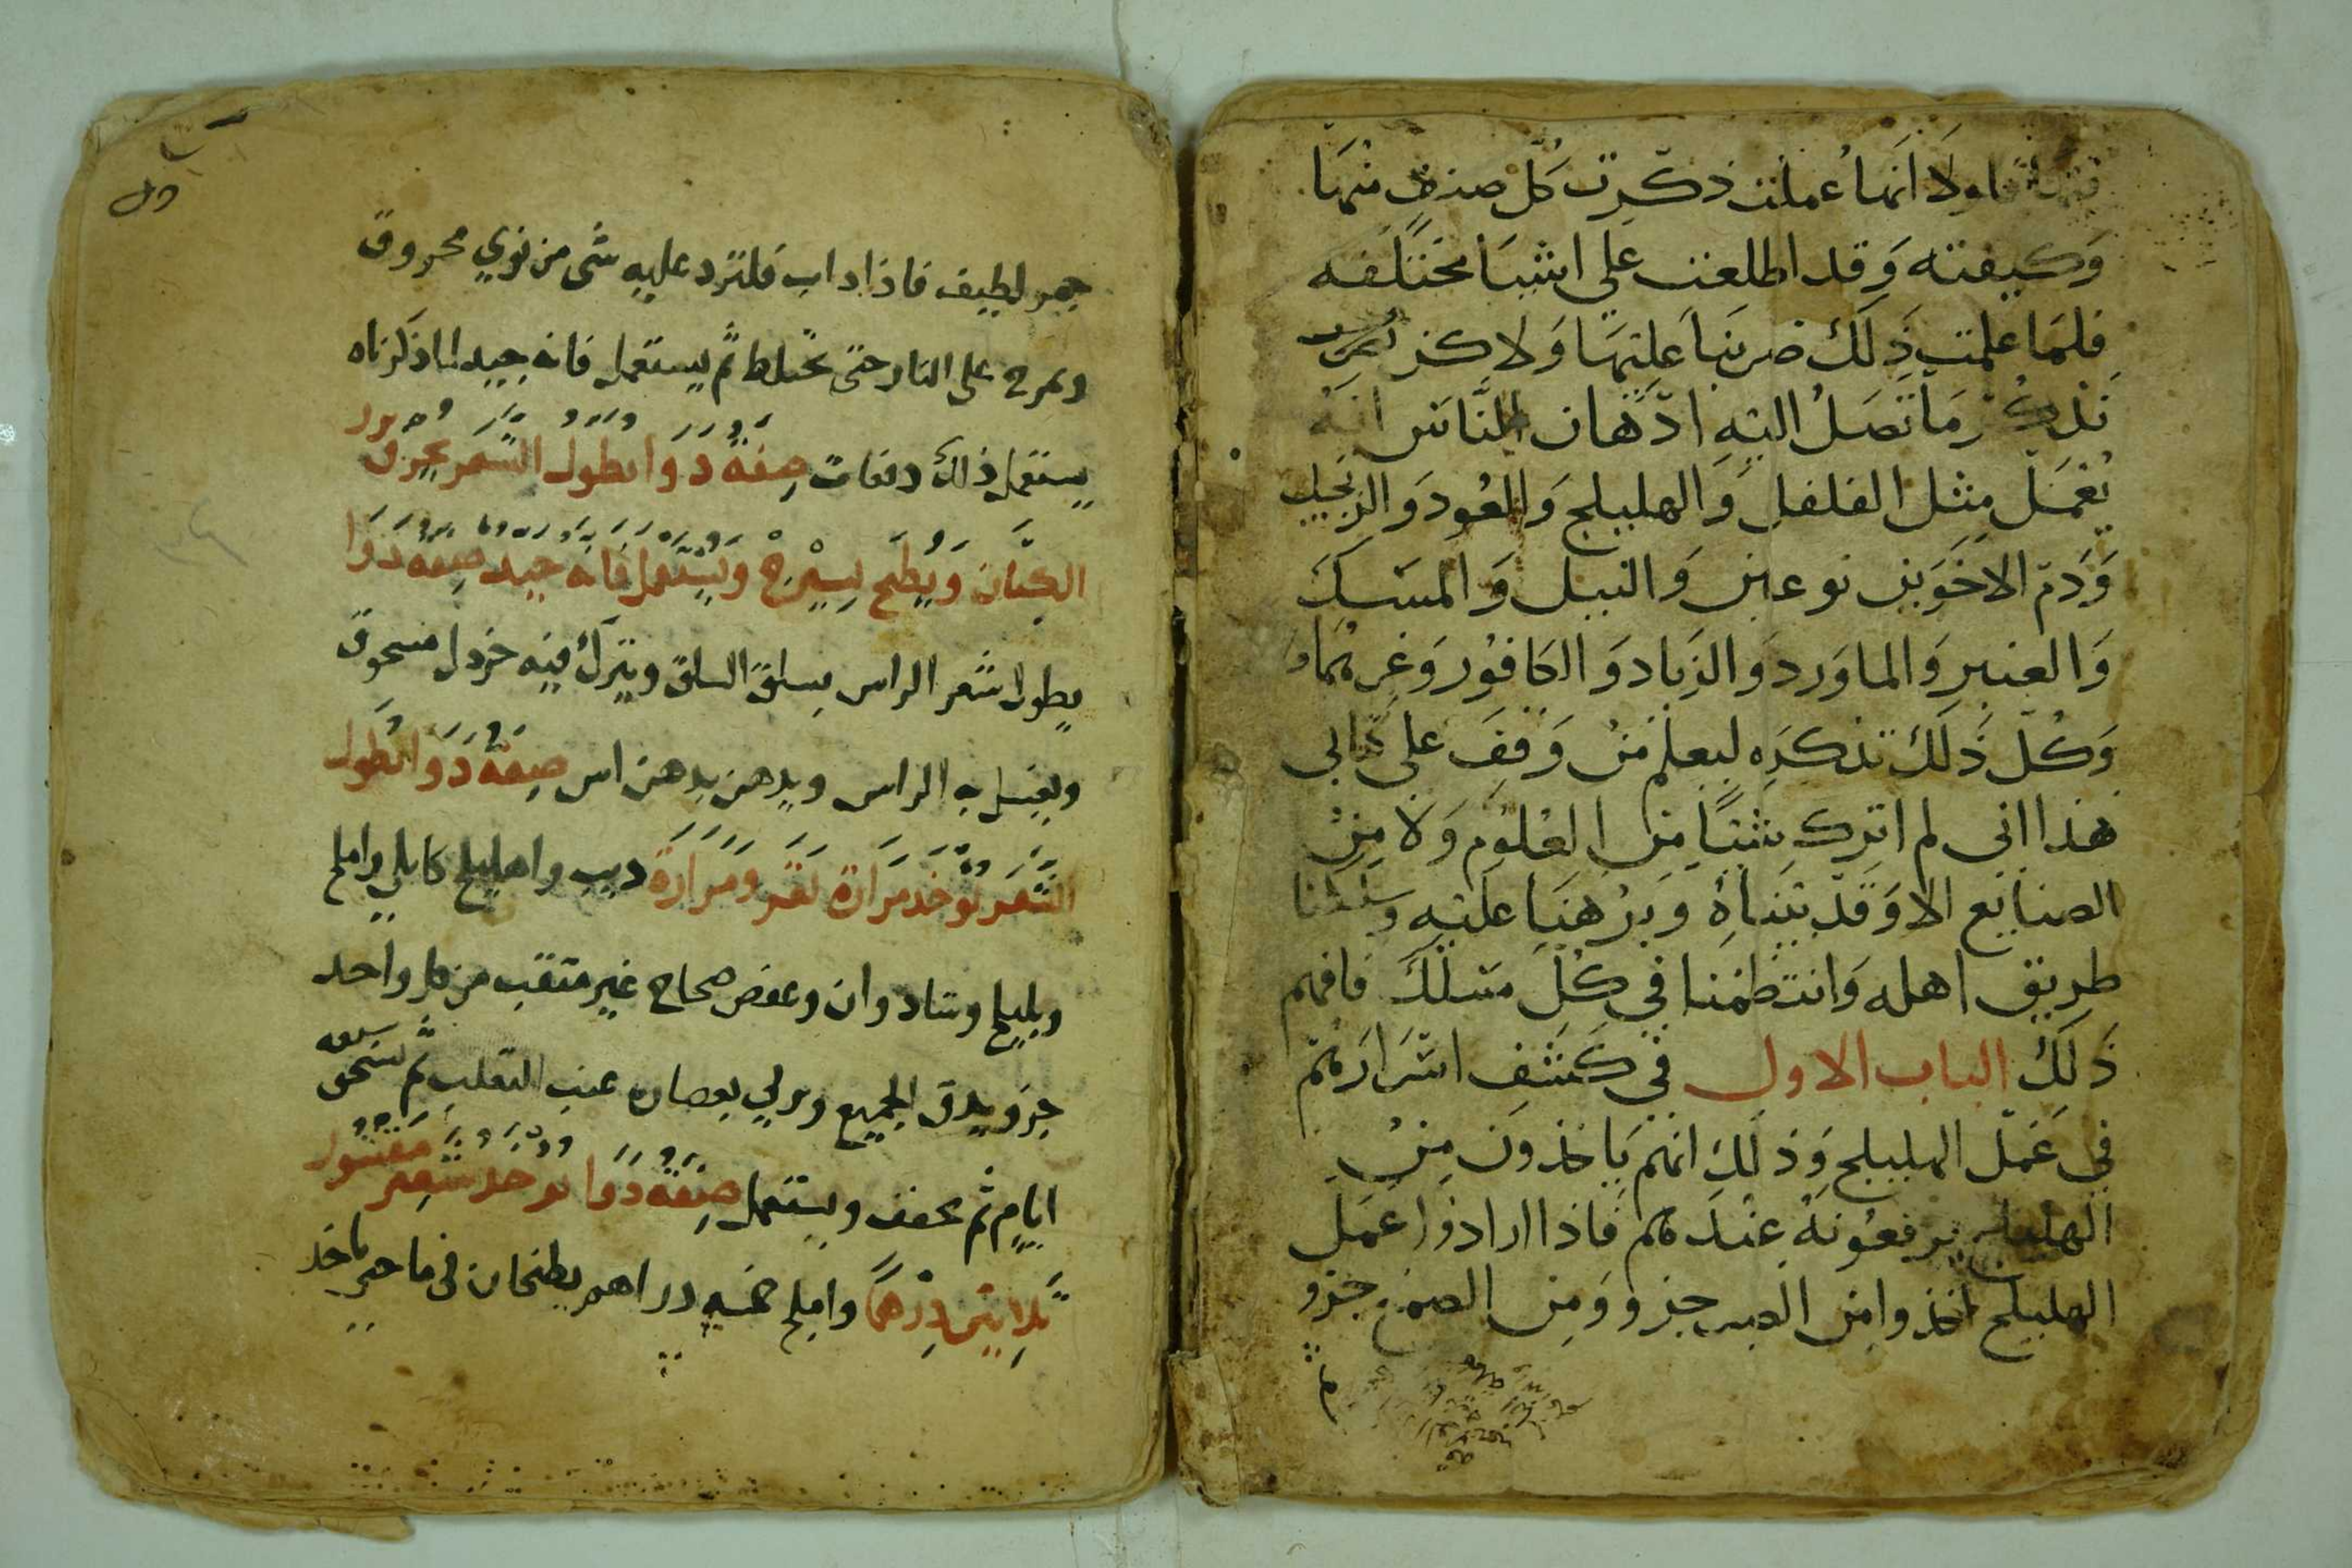 ولا انها عملت ذكرت كل صنف منها
وكيفته وقد اطلعت على اشيا مختلفه
فلما علمت ذلك ضربنا عليها ولاكن
نذكر ما تصل اليه اذهان الناس انه
يعمل مثل الفلفل والهليلج والعود والزنجبيل
ودم الاخوين نوعين والنيل والمسك
والعنبر والماورد والزباد والكافور وغيرهما
وكل ذلك نذكره ليعلم من وقف على كتابي
هذا اني لم اترك شيئا من العلوم ولا من
الصنايع الا وقد بيناه وبرهنا عليه وسلكنا
طريق اهله وانتظمنا في كل مسلك فافهم
ذلك الباب الاول في كشف اسرارهم
في عمل الهليلج وذلك انهم ياخذون من
يرفعونه عندهم فاذا ارادوا عمل
الهليلج اخذوا من الصبر جزو ومن الصمغ جزو
جمر لطيف فاذا داب فلترد عليه شى من نوي محروق
ويمرح على النار حتى يختلط ثم يستعمل فانه جيد لما ذكرناه
يستعمل ذلك دفعات صفة دوا يطول الشعر يحرق بزر
الكتان ويطبخ بسيرج ويستعمل فانه جيد صفة دوا
يطول شعر الراس يسلق السلق ويترك فيه خردل مسحوق
ويغسل به الراس ويدهن بدهن اس صفة دوا يطول
الشعر يوخذ مرارة بقر ومرارة ديب واهليلج كابلي واملج
وبليلج وشادوان وعفص صحاح غير مثقب من كل واحد
جزو يدق الجميع ويربي بعصاره عنب الثعلب ثم يسحق سبعه
ايام ثم يجفف ويستعمل صفة دوا يوخذ شعير مقشور
ثلاثين درهما واملج خمسه دراهم يطبخان في ما حتى ياخذ